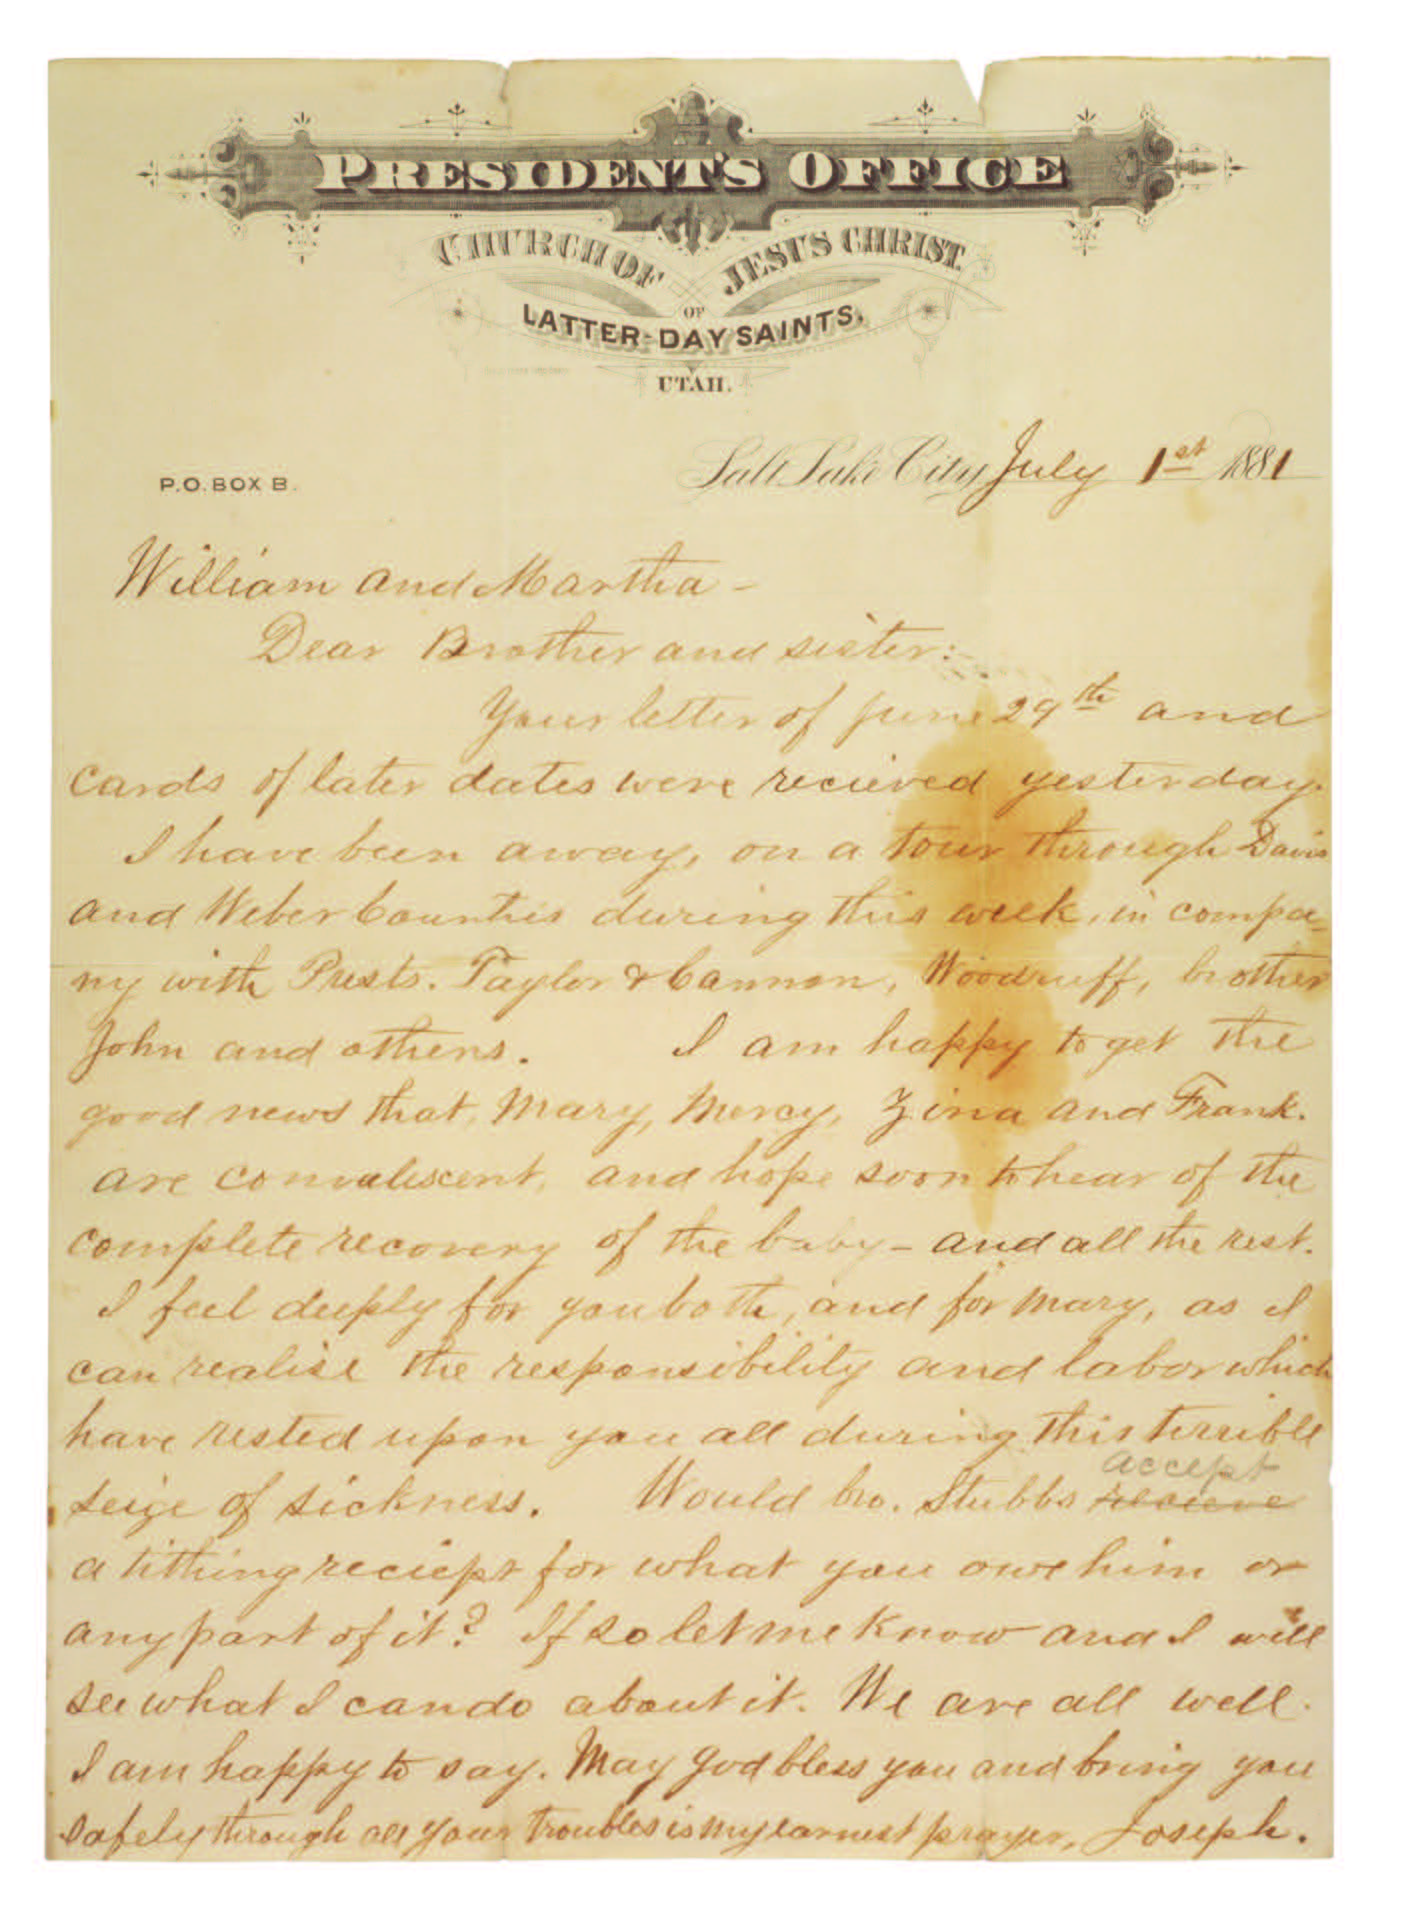 PRESIDENT'S OFFICE
CHURCH OF JESUS CHRIST
OF
LATTER-DAY SAINTS.
UTAH.
Salt Lake City July 1st 1881
P.O. BOX B.
William and Martha -
Dear Brother and sister:-
Your letter of June 29th and
cards of later dates were recieved yesterday.
I have been away, on a tour through Davis
and Weber Counties during this week, in compa-
ny with Prests. Taylor & Cannon, Woodruff, brother
John and others. I am happy to get the
good news that, Mary, Mercy, Zina and Frank.
are convalescent, and hope soon to hear of the
complete recovery of the baby - and all the rest.
I feel deeply for you both, and for Mary, as I
can realise the responsibility and labor which
have rested upon you all during this terrible
accept
seige of sickness. Would bro. Stubbs recieve
a tithing reciept for what you owe him or
any part of it? If so let me know and I will
see what I can do about it. We are all well.
I am happy to say. May God bless you and bring you
safely through all your troubles is my earnest prayer, Joseph.